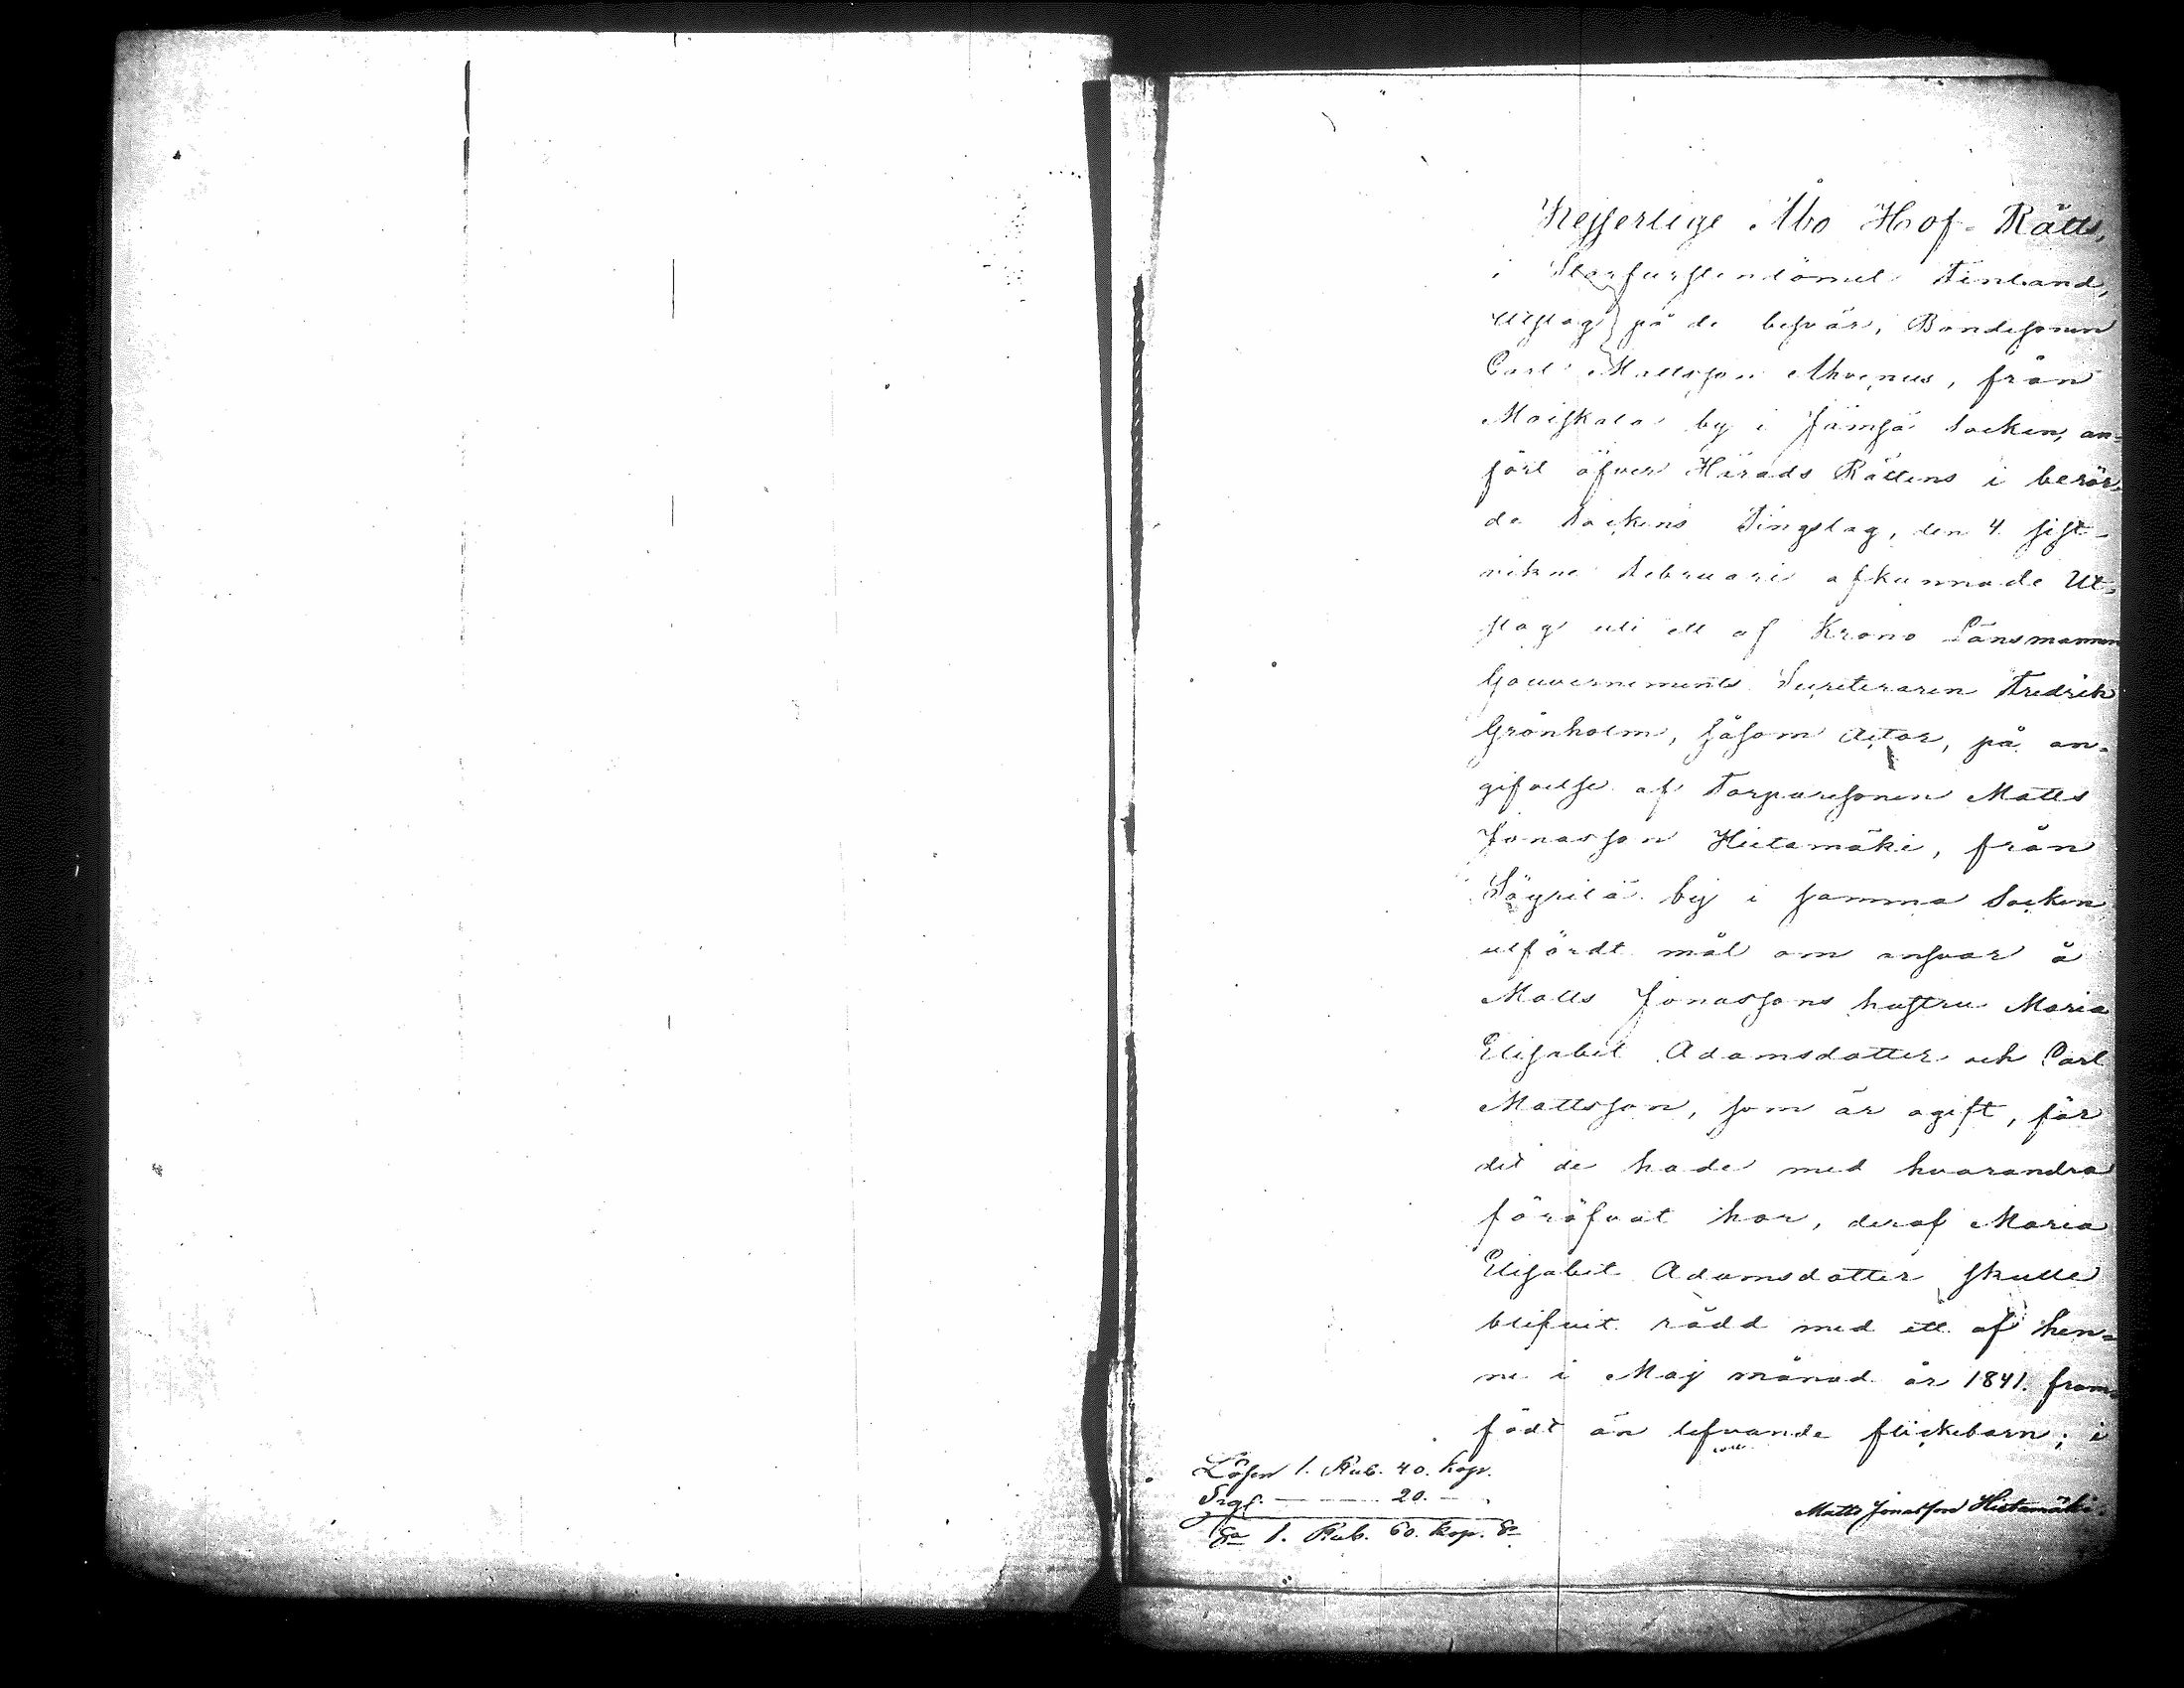 Kejserlige Åbo Hof-Rätts,
i Storfurstendömet Finland,
Utslag på de besvär, Bondesonen
Carl Mattsson Ahvenus, från
Moiskala by i Jämsä Socken, an-
fört öfver Härads Rättens i berör-
de Sockens Tingslag, den 4 sist-
vikne Februari afkunnade Ut-
slag uti ett af Krono Länsmannen
Gouvernements Secreteraren Fredrik
Grönholm, såsom Actor, på an-
gifvelse af Torparesonen Matts
Jonasson Hietamäki, från
by i samma Socken
utfördt mål om ansvar å
Matts Jonassons hustru Maria
Elisabet Adamsdotter och Carl
Mattsson, som är ogift, för
det de hade med hvarandra
föröfvat hor, deraf Maria
Elisabet Adamsdotter skulle
blifvit rådd med ett af hen-
ne i Maj månad år 1841. fram-
födt än lefvande flickebarn; i
Lösen 1. Rub. 40. kop.
20.
Sa 1. Rub. 60. kop. Sr
Matts Jonasson Hietamäki.